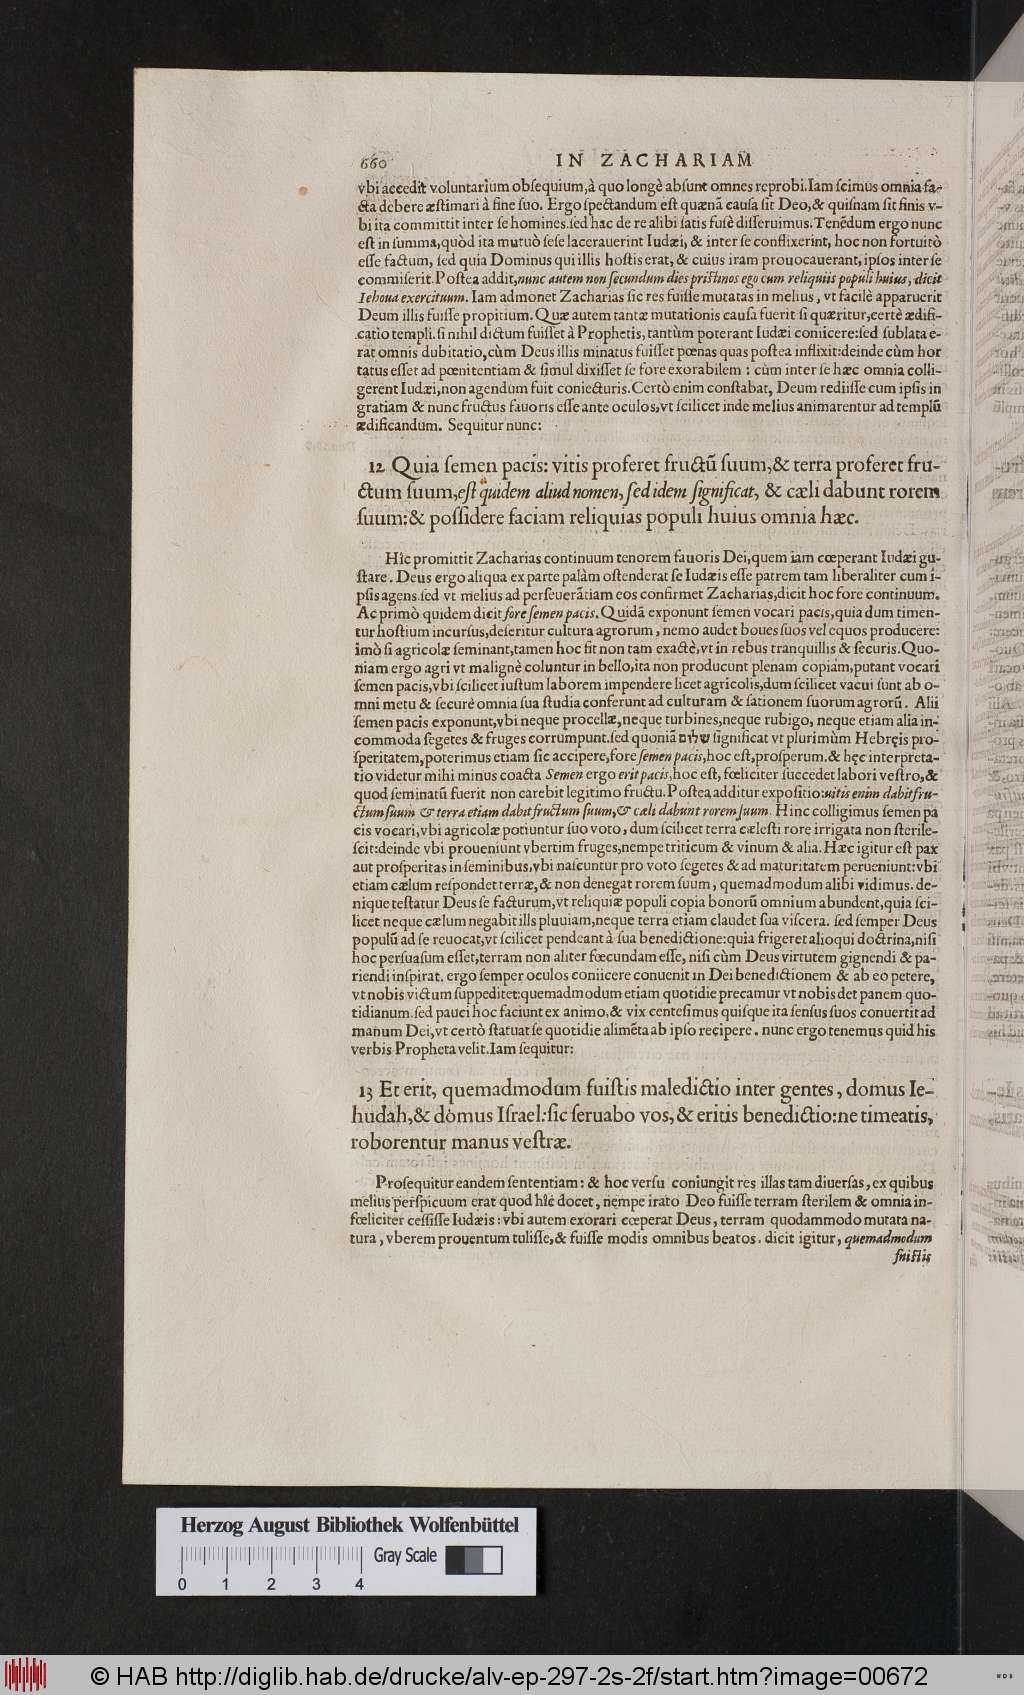 660
IN ZACHARIAM
vbi accedit voluntarium obsequium, à quo longè absunt omnes reprobi. Iam scimus omnia fa-
cta debere æstimari à fine suo. Ergo spectandum est quænã causa sit Deo, & quisnam sit finis v-
bi ita committit inter se homines. sed hac de re alibi satis fusè disseruimus. Tenẽdum ergo nunc
est in summa, quòd ita mutuò sese lacerauerint Iudæi, & inter se conflixerint, hoc non fortuitò
esse factum, sed quia Dominus qui illis hostis erat, & cuius iram prouocauerant, ipsos inter se
commiserit. Postea addit, nunc autem non secundum dies pristinos ego cum reliquiis populi huius, dicit
Iehoua exercituum. Iam admonet Zacharias sic res fuisse mutatas in melius, vt facilè apparuerit
Deum illis fuisse propitium. Quæ autem tantæ mutationis causa fuerit si quæritur, certè ædifi-
catio templi. si nihil dictum fuisset à Prophetis, tantùm poterant Iudæi coniicere: sed sublata e-
rat omnis dubitatio, cùm Deus illis minatus fuisset pœnas quas postea inflixit: deinde cùm hor
tatus esset ad pœnitentiam & simul dixisset se fore exorabilem: cùm inter se hæc omnia colli-
gerent Iudæi, non agendum fuit coniecturis. Certò enim constabat, Deum rediisse cum ipsis in
gratiam & nunc fructus fauoris esse ante oculos, vt scilicet inde melius animarentur ad templũ
ædificandum. Sequitur nunc:
12 Quia semen pacis: vitis proferet fructũ suum, & terra proferet fru-
ctum suum, est quidem aliud nomen, sed idem significat, & cæli dabunt rorem
suum: & possidere faciam reliquias populi huius omnia hæc.
Hîc promittit Zacharias continuum tenorem fauoris Dei, quem iam cœperant Iudæi gu-
stare. Deus ergo aliqua ex parte palàm ostenderat se Iudæis esse patrem tam liberaliter cum i-
psis agens. sed vt melius ad perseuerãtiam eos confirmet Zacharias, dicit hoc fore continuum.
Ac primò quidem dicit fore semen pacis. Quidã exponunt semen vocari pacis, quia dum timen-
tur hostium incursus, deseritur cultura agrorum, nemo audet boues suos vel equos producere:
imò si agricolæ seminant, tamen hoc fit non tam exactè, vt in rebus tranquillis & securis. Quo-
niam ergo agri vt malignè coluntur in bello, ita non producunt plenam copiam, putant vocari
semen pacis, vbi scilicet iustum laborem impendere licet agricolis, dum scilicet vacui sunt ab o-
mni metu & securè omnia sua studia conferunt ad culturam & sationem suorum agrorũ. Alii
semen pacis exponunt, vbi neque procellæ, neque turbines, neque rubigo, neque etiam alia in-
commoda segetes & fruges corrumpunt. sed quoniã שלום significat vt plurimùm Hebręis pro-
speritatem, poterimus etiam sic accipere, fore semen pacis, hoc est, prosperum. & hęc interpreta-
tio videtur mihi minus coacta Semen ergo erit pacis, hoc est, fœliciter succedet labori vestro, &
quod seminatũ fuerit non carebit legitimo fructu. Postea additur expositio: uitis enim dabit fru-
ctum suum & terra etiam dabit fructum suum, & cæli dabunt rorem suum. Hinc colligimus semen pa
cis vocari, vbi agricolæ potiuntur suo voto, dum scilicet terra cælesti rore irrigata non sterile-
scit: deinde vbi proueniunt vbertim fruges, nempe triticum & vinum & alia. Hæc igitur est pax
aut prosperitas in seminibus, vbi nascuntur pro voto segetes & ad maturitatem perueniunt: vbi
etiam cælum respondet terræ, & non denegat rorem suum, quemadmodum alibi vidimus. de-
nique testatur Deus se facturum, vt reliquiæ populi copia bonorũ omnium abundent, quia sci-
licet neque cælum negabit ills pluuiam, neque terra etiam claudet sua viscera. sed semper Deus
populũ ad se reuocat, vt scilicet pendeant à sua benedictione: quia frigeret alioqui doctrina, nisi
hoc persuasum esset, terram non aliter fœcundam esse, nisi cùm Deus virtutem gignendi & pa-
riendi inspirat. ergo semper oculos coniicere conuenit in Dei benedictionem & ab eo petere,
vt nobis victum suppeditet: quemadmodum etiam quotidie precamur vt nobis det panem quo-
tidianum. sed pauci hoc faciunt ex animo, & vix centesimus quisque ita sensus suos conuertit ad
manum Dei, vt certò statuat se quotidie alimẽta ab ipso recipere. nunc ergo tenemus quid his
verbis Propheta velit. Iam sequitur:
13 Et erit, quemadmodum fuistis maledictio inter gentes, domus Ie-
hudah, & domus Israel: sic seruabo vos, & eritis benedictio: ne timeatis,
roborentur manus vestræ.
Prosequitur eandem sententiam: & hoc versu coniungit res illas tam diuersas, ex quibus
melius perspicuum erat quod hîc docet, nempe irato Deo fuisse terram sterilem & omnia in-
fœliciter cessisse Iudæis: vbi autem exorari cœperat Deus, terram quodammodo mutata na-
tura, vberem prouentum tulisse, & fuisse modis omnibus beatos. dicit igitur, quemadmodum
fuistis
Herzog August Bibliothek Wolfenbüttel
Gray Scale
0 1 2 3 4
© HAB http://diglib.hab.de/drucke/alv-ep-297-2s-2f/start.htm?image=00672